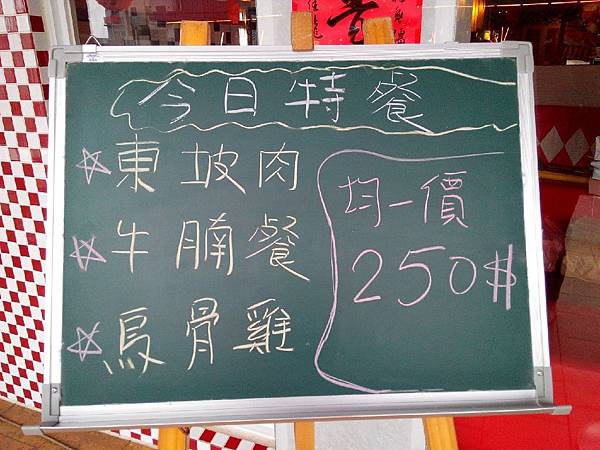 今日特餐
☆東坡肉
☆牛腩餐
☆烏骨雞
均一價
250$